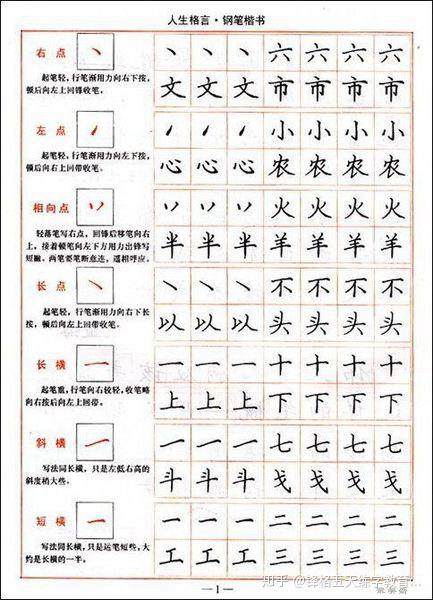 人生格言·钢笔楷书
右点
起笔轻,行笔渐用力向右下按,
顿后向左上回锋收笔。
丶丶丶六六六六
文文文市市市市
左点
起笔轻,行笔渐用力向左下按,
顿后向右上回带收笔。
小小小小
心心心农农农农
相向点
轻落笔写右点,回锋后移笔向右
上,接着顿笔向左下方用力出锋写
短撇。两笔要笔断意连,遥相呼应。
火火火火
半半半羊羊羊羊
长点
起笔轻,行笔渐用力向右下长
按,顿后向左上回带收笔。
不不不不
以以以头头头头
长横
起笔重,行笔向右较轻,收笔略
向右按后向左上回带。
一一一十十十十
上上上下下下下
斜横
写法同长横,只是左低右高的
斜度稍大些。
一一一七七七七
斗斗斗戈戈戈戈
短横
写法同长横,只是运笔短些,大
约是长横的一半。
一一一二二二二
工工工三三三三
—1—
知乎 @锋格五天练字教育...